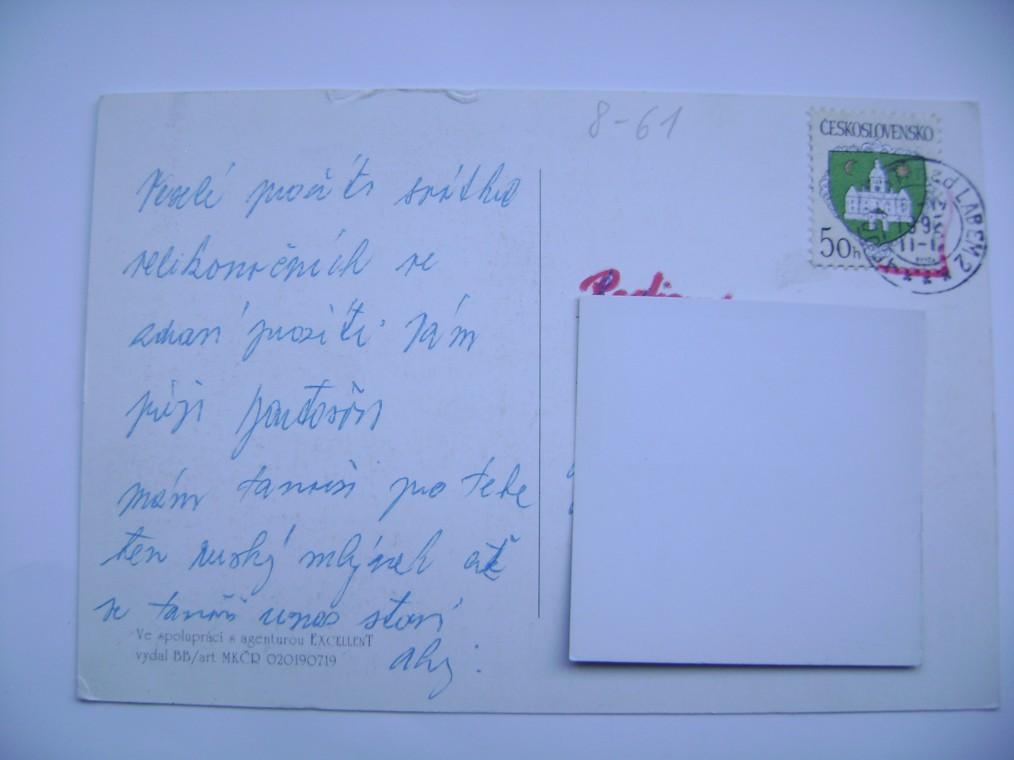 8-61
ČESKOSLOVENSKO
50h
LABEM 2
Veselé prožití svátků
velikonočních ve
zdraví prožití Vám
přeji
mám pro tebe
ten ruský mlýnek až
se u nás staví
ahoj
Ve spolupráci s agenturou EXCELLENT
vydal BB/art MKČR 020190719